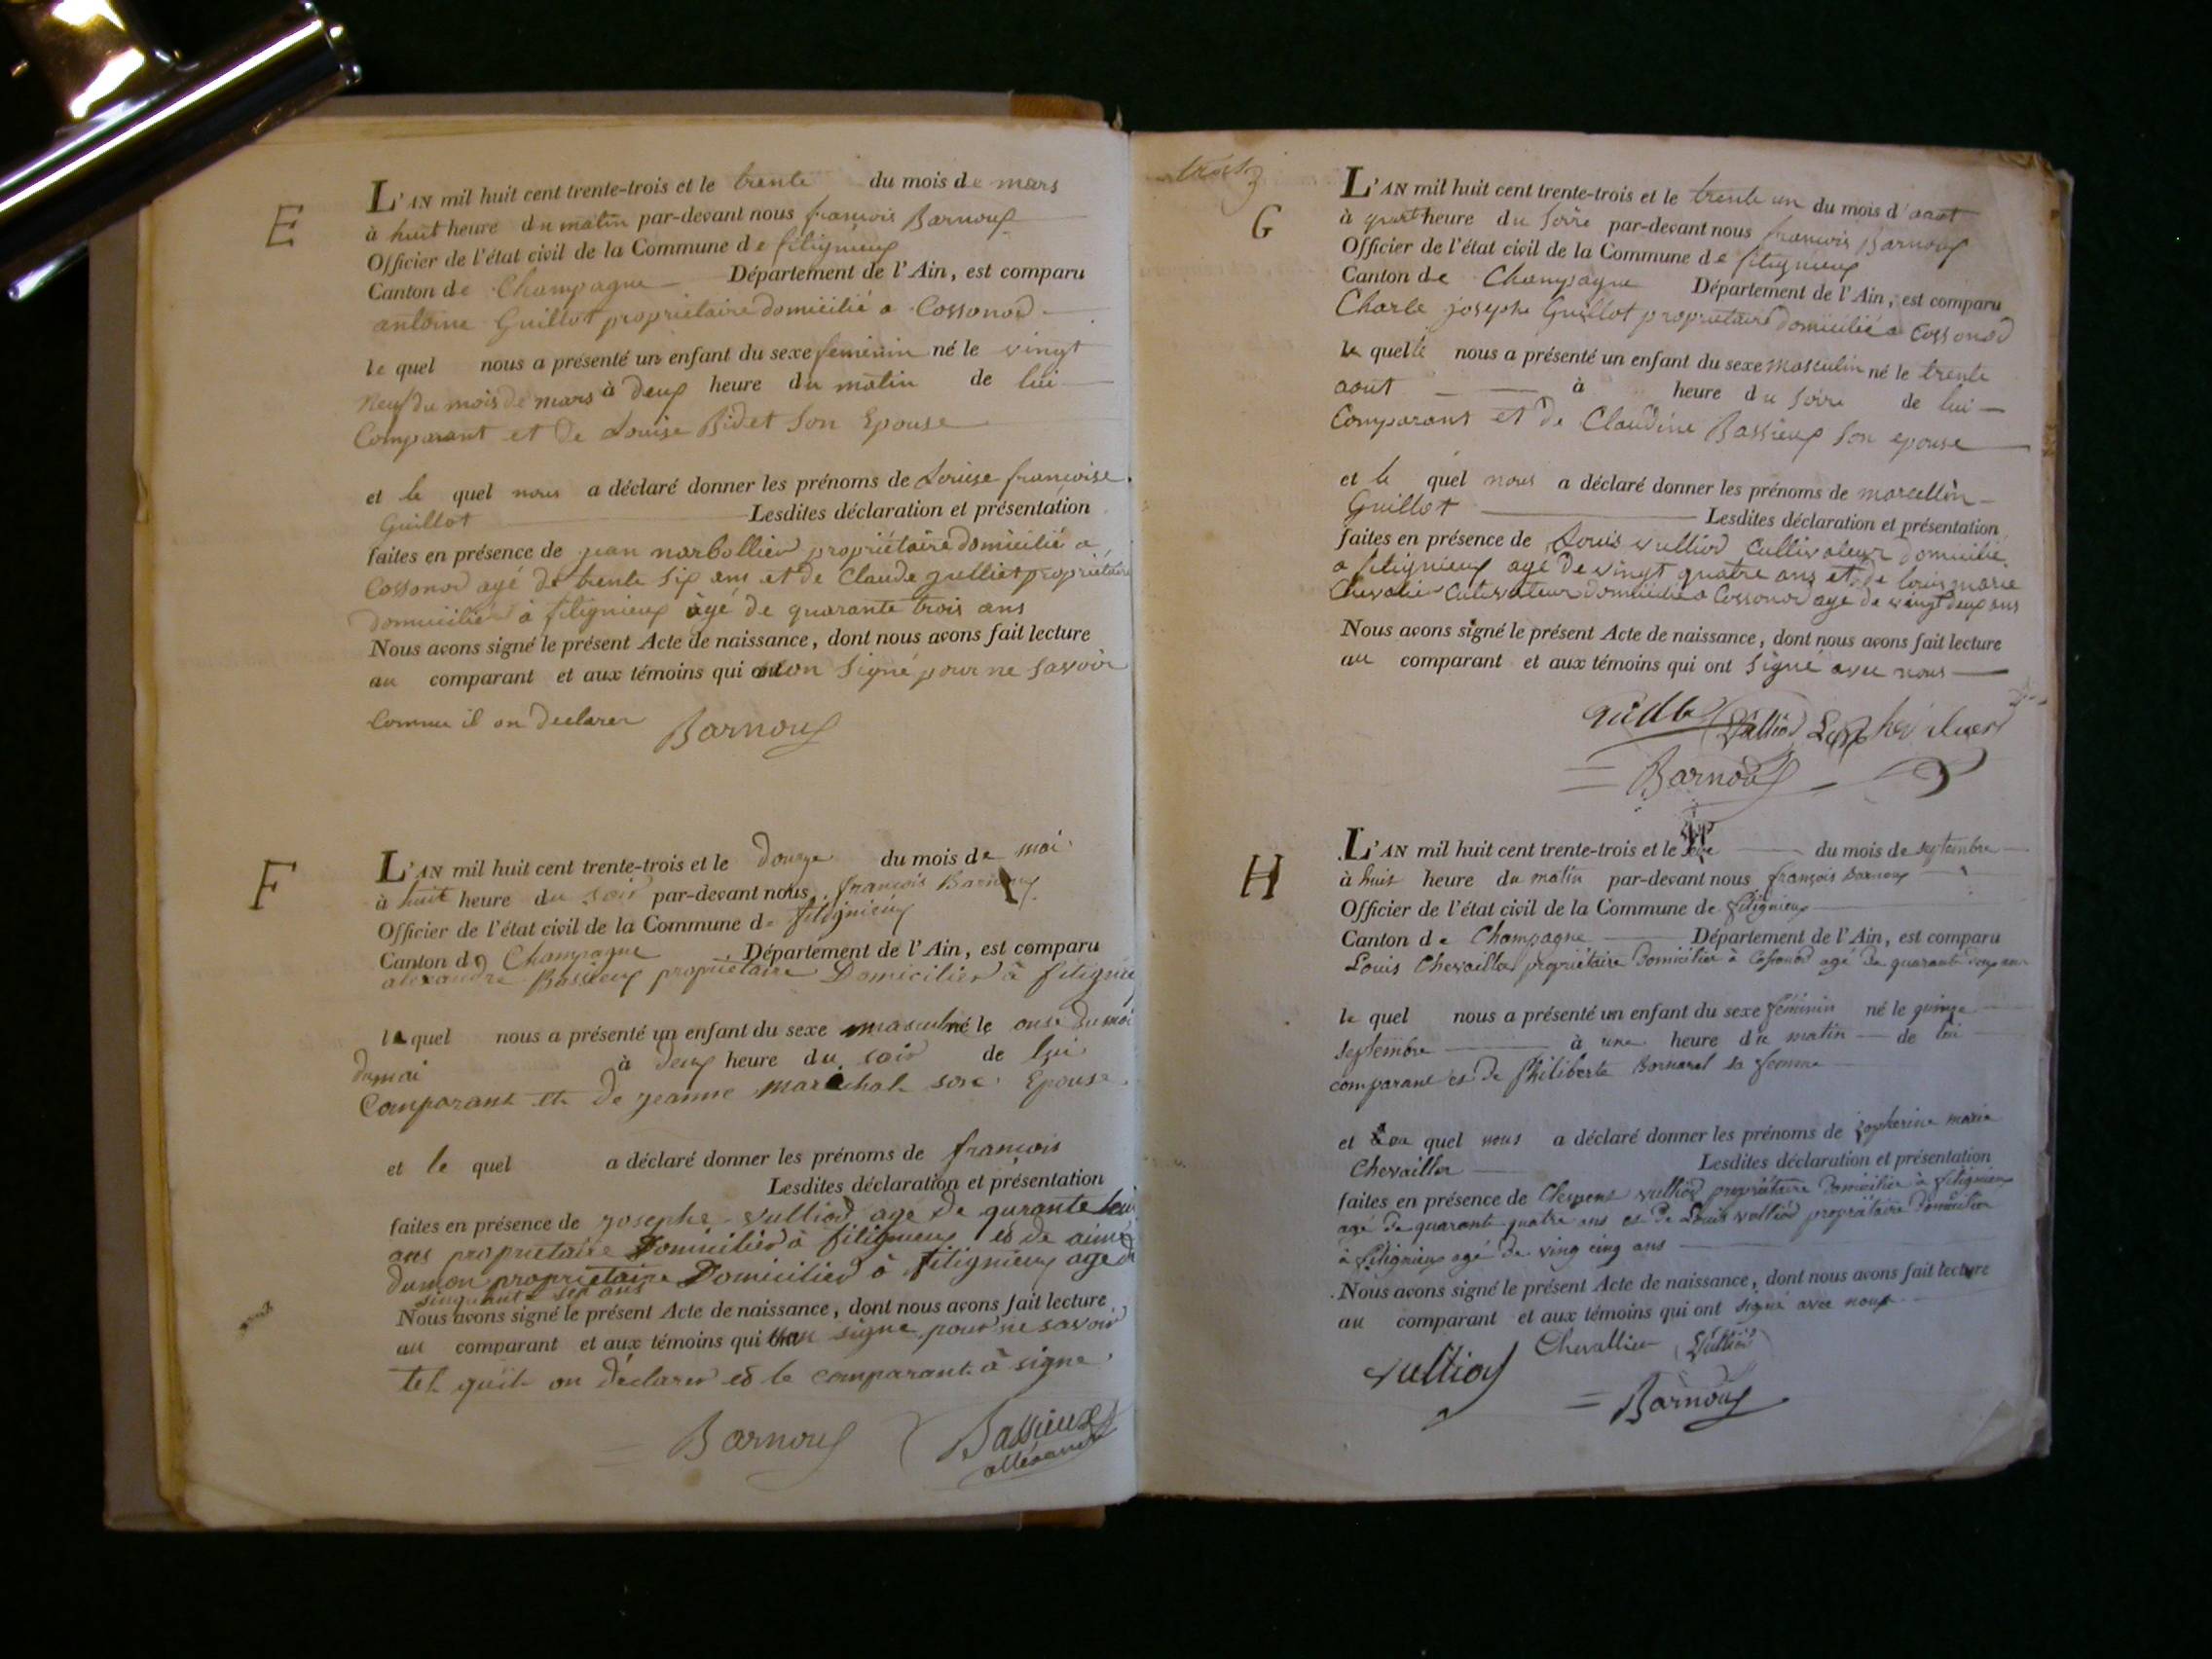 E
L'AN mil huit cent trente-trois et le trente du mois de mars
à huit heure du matin par-devant nous francois Barnoux
Officier de l'état civil de la Commune de fitignieux
Canton de Champagne Département de l'Ain, est comparu
antoine Guillot propriétaire domicilié a Cossonod
le quel nous a présenté un enfant du sexe feminin né le vingt
neuf du mois de mars à deux heure du matin de lui
Comparant et de Louise Bidet son Epouse
et le quel nous a déclaré donner les prénoms de Louise francoise
Guillot Lesdites déclaration et présentation
faites en présence de jean narbollier propriétaire domicilié a
Cossonod agé de trente six ans et de Claude jullier propriétaire
domicilié à fitignieux àgé de quarante trois ans
Nous avons signé le présent Acte de naissance, dont nous avons fait lecture
au comparant et aux témoins qui on signé pour ne savoir
Comme il on declarer
Barnoux
F
L'AN mil huit cent trente-trois et le douze du mois de mai
à huit heure du soir par-devant nous francois Barnoux
Officier de l'état civil de la Commune de fitignieux
Canton de Champagne Département de l'Ain, est comparu
alexandre Bassieux propriétaire Domicilier à fitignieux
le quel nous a présenté un enfant du sexe masculin né le onse du moi
du mai à deux heure du soir de lui
Comparant et de jeanne maréchal son Epouse
et le quel a déclaré donner les prénoms de francois
Lesdites déclaration et présentation
faites en présence de josephe vulliod age de qurante
ans proprietaire Domicilier à fitignieux et de aimé
dumon propriétaire Domicilier à fitignieux age de
sinquante sept ans
Nous avons signé le présent Acte de naissance, dont nous avons fait lecture
au comparant et aux témoins qui signe pour ne savoir
tel quil on déclarer et le comparant à signe
Barnoux Bassieux
allexandre
trois 3
G
L'AN mil huit cent trente-trois et le trente un du mois d'aoat
à quatt heure du soire par-devant nous francois Barnoux
Officier de l'état civil de la Commune de fitignieux
Canton de Champagne Département de l'Ain, est comparu
Charle josephe Guillot propriétaire domicilié a Cossonod
le quelle nous a présenté un enfant du sexe masculin né le trente
aout à heure du soire de lui
Comparant et de Claudine Bassieux son epouse
et le quel nous a déclaré donner les prénoms de marcellin
Guillot Lesdites déclaration et présentation
faites en présence de Louis vulliod Cultivateur domicilié
a fitignieux agé de vingt quatre ans et de louis marie
Chevalier Cultivateur domicilié a Cossonod agé de vingt deux ans
Nous avons signé le présent Acte de naissance, dont nous avons fait lecture
au comparant et aux témoins qui ont signé avec nous
Vulliod
Barnoux
H
L'AN mil huit cent trente-trois et le du mois de septembre
à huit heure du matin par-devant nous françois Barnoux
Officier de l'état civil de la Commune de fitignieux
Canton de Champagne Département de l'Ain, est comparu
Louis Chevailler propriétaire domicilier à Cossonod agé de quarante
le quel nous a présenté un enfant du sexe féminin né le quinze
septembre à une heure du matin de lui
comparant et de Philiberte Bornarel sa femme
et quel nous a déclaré donner les prénoms de jospherine marie
Chevailler Lesdites déclaration et présentation
faites en présence de Clemens vulliod propriétaire domicilier à fitignieux
agé de quarante quatre ans et de Louis vulliod propriétaire domicilier
à fitignieux agé de ving cinq ans
Nous avons signé le présent Acte de naissance, dont nous avons fait lecture
au comparant et aux témoins qui ont signé avec nous
vulliod Chevallier Vulliod
Barnoux